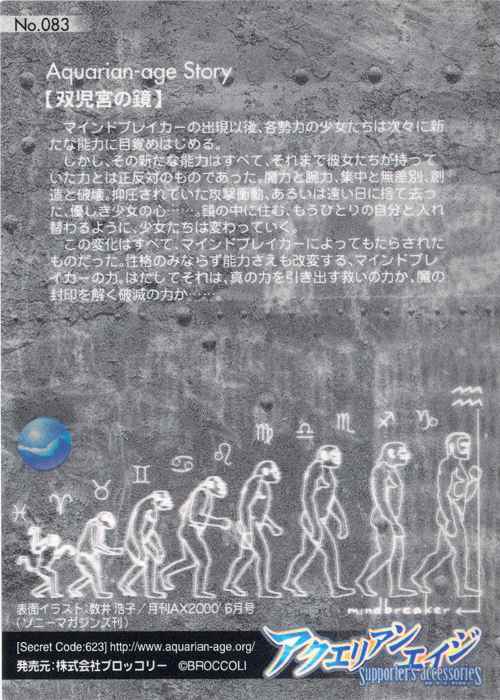 No.083
Aquarian-age Story
【双児宮の鏡】
マインドブレイカーの出現以後、各勢力の少女たちは次々に新
たな能力に目覚めはじめる。
しかし、その新たな能力はすべて、それまで彼女たちが持って
いた力とは正反対のものであった。魔力と腕力、集中と無差別、創
造と破壊。抑圧されていた攻撃衝動、あるいは遠い日に捨て去っ
た、優しき少女の心……。鏡の中に住む、もうひとりの自分と入れ
替わるように、少女たちは変わっていく。
この変化はすべて、マインドブレイカーによってもたらされた
ものだった。性格のみならず能力さえも改変する、マインドブレ
イカーの力。はたしてそれは、真の力を引き出す救いの力か、魔の
封印を解く破滅の力か……。
♒
♓ ♈ ♉ ♊ ♋ ♌ ♍ ♎ ♏ ♐ ♑
mindbreaker
表面イラスト:数井 浩子/月刊AX2000' 6月号
(ソニーマガジンズ刊)
[Secret Code:623] http://www.aquarian-age.org/
発売元:株式会社ブロッコリー ©BROCCOLI
アクエリアンエイジ
Supporter's accessories